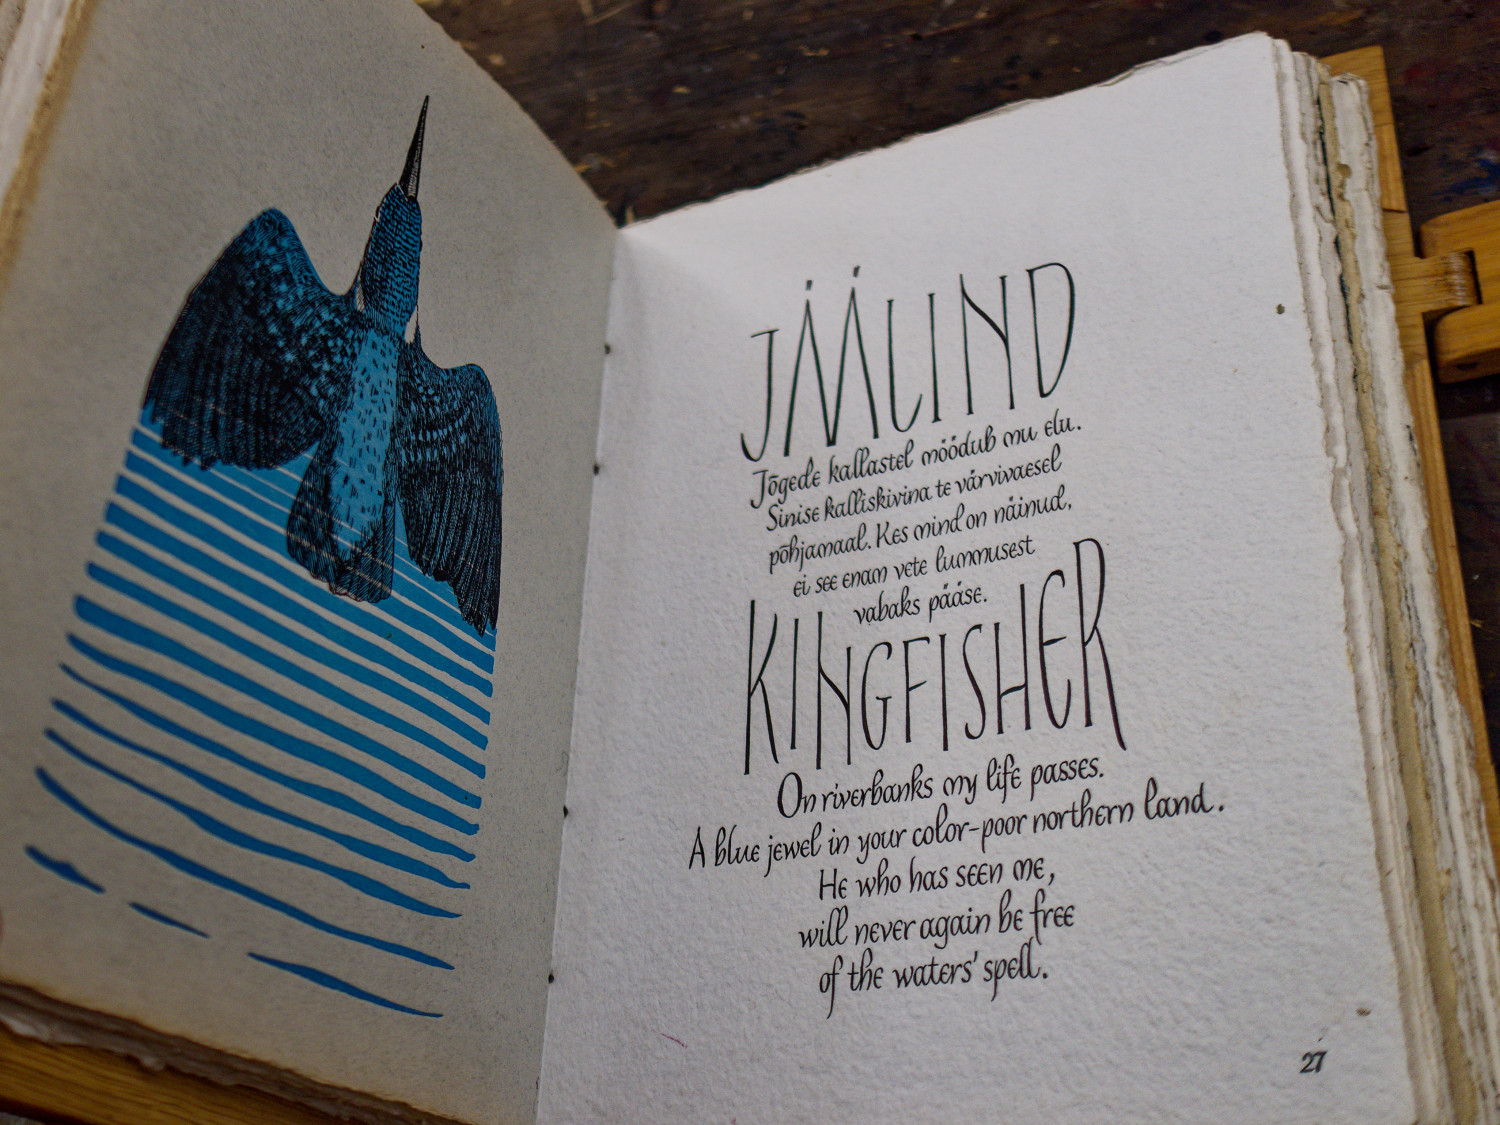 JÄÄLIND
Jõgede kallastel möödub mu elu.
Sinise kalliskivina te värvivaesel
põhjamaal. Kes mind on näinud,
ei see enam vete lummusest
vabaks pääse.
KINGFISHER
On riverbanks my life passes.
A blue jewel in your color-poor northern land.
He who has seen me,
will never again be free
of the waters' spell.
27